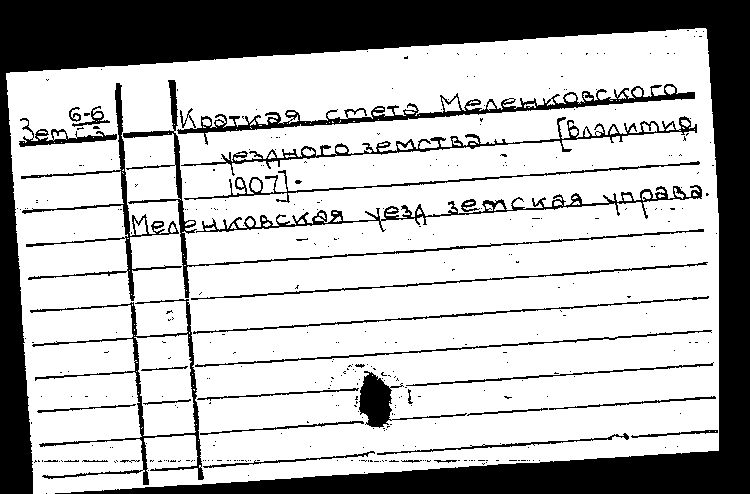 Зем 6-6 Г-3
Краткая смета Меленковского
уездного земства... [Владимир,
1907].
Меленковская уезд земская управа.